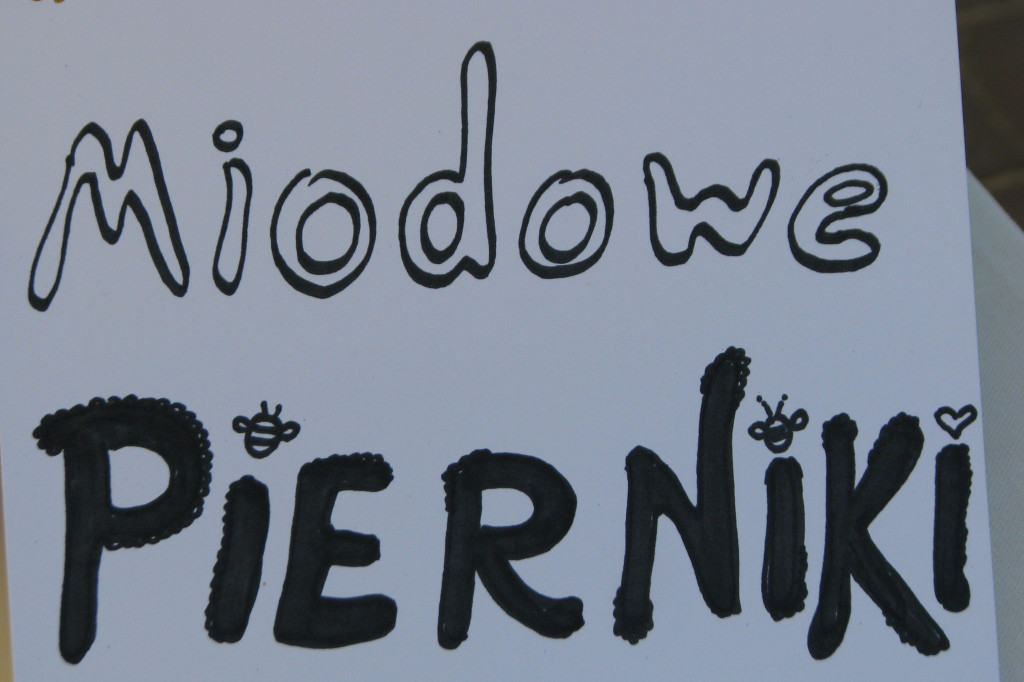 Miodowe
PiERNiKi